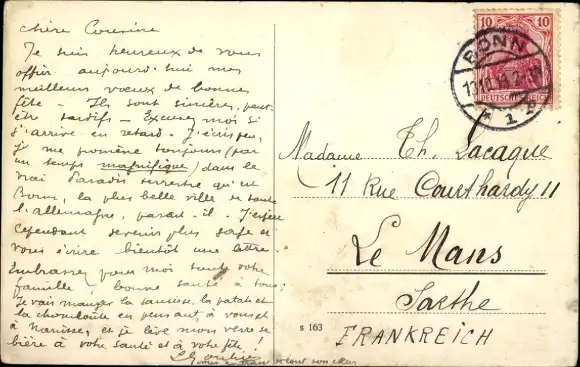 chère Cousine
Je suis heureux de vous
offrir aujourd'hui mes
meilleurs vœux de bonne
fête - Ils sont sincères, peut-
être tardifs - Excusez moi si
j'arrive en retard. J'écris peu,
je me promène toujours (par
un temps magnifique) dans le
vrai Paradis terrestre qu'est
Bonn, la plus belle ville de toute
l'allemagne, paraît-il. J'espère
cependant devenir plus sage et
vous écrire bientôt une lettre.
Embrassez pour moi toute votre
famille, bonne santé à tous;
Je vais manger la saucisse, la patate et
la choucroute en pensant à vous et
à et je lève mon verre de
bière à votre santé et à votre fête!
vous embrasse de tout son cœur
10 10
BONN
DEUTSCHES REICH
* 1
Madame Th. Lacaque
11 Rue Courthardy 11
Le Mans
Sarthe
FRANKREICH
S 163